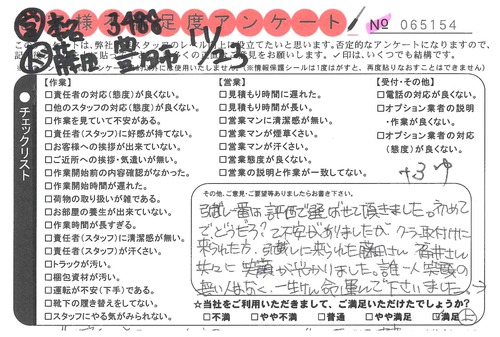 様 足度アンケート № 065154
責任者の対応(態度)が良くない。
他のスタッフの対応(態度)が良くない。
作業を見ていて不安がある。
責任者(スタッフ)に好感が持てない。
お客様への挨拶が出来ていない。
ご近所への挨拶・気遣いが無い。
作業開始前の内容確認がなかった。
作業開始時間が遅れた。
荷物の取り扱いが雑である。
お部屋の養生が出来ていない。
作業時間が長すぎる。
責任者(スタッフ)に清潔感が無い。
責任者(スタッフ)が汗くさい。
トラックが汚い。
梱包資材が汚い。
運転が不安(下手)である。
靴下の履き替えをしてない。
スタッフにやる気がみられない。
【作業】
チェックリスト
【営業】
見積もり時間に遅れた。
見積もり時間が長い。
営業マンに清潔感が無い。
営業マンが煙草くさい。
営業マンが汗くさい。
営業態度が良くない。
営業の説明と作業が一致してない。
【受付・その他】
電話の対応が良くない。
オプション業者の説明
・作業が良くない。
オプション業者の対応
(態度)が良くない。
その他、ご意見・ご要望等ありましたらお書き下さい。
引越し一番は評価で選ばせて頂きました。初めて
でどうだろう?て不安がありましたが、クーラー取付けに
来られた方、引越しに来られた藤田さん
共々に笑顔がやかりました。誰一人笑顔の
無い人はなく、一生けん命運んで下さいました。
☆当社をご利用いただきまして、ご満足いただけたでしょうか?
不満 やや不満 普通 やや満足 満足 上